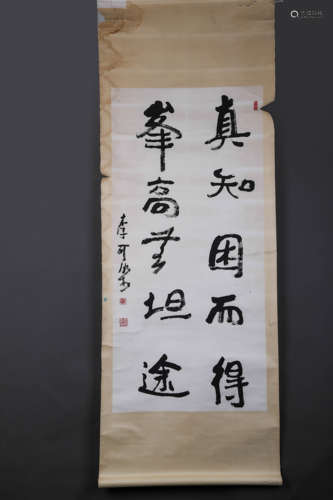 真知困而得
峯高芜坦途
李可染